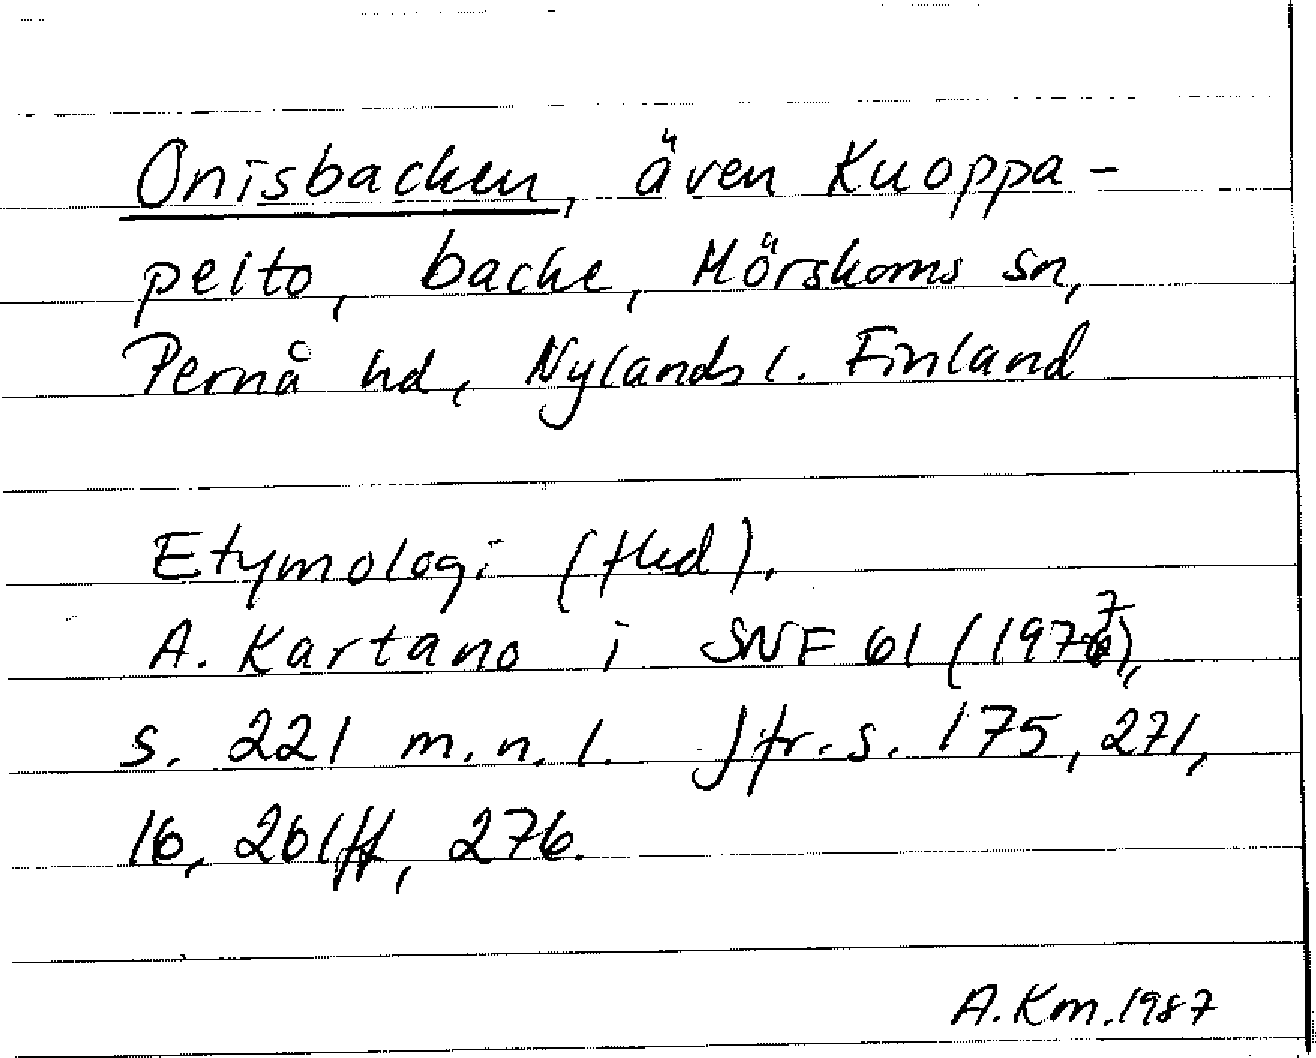 Onisbacken, även Kuoppa-
pelto, backe, Mörskoms sn,
Pernå hd, Nylands l. Finland
Etymologi (fled).
A. Kartano i SNF 61 (1977),
s. 221 m.n.l. Jfr. s. 175, 271,
16, 261ff, 276.
A. Km. 1987